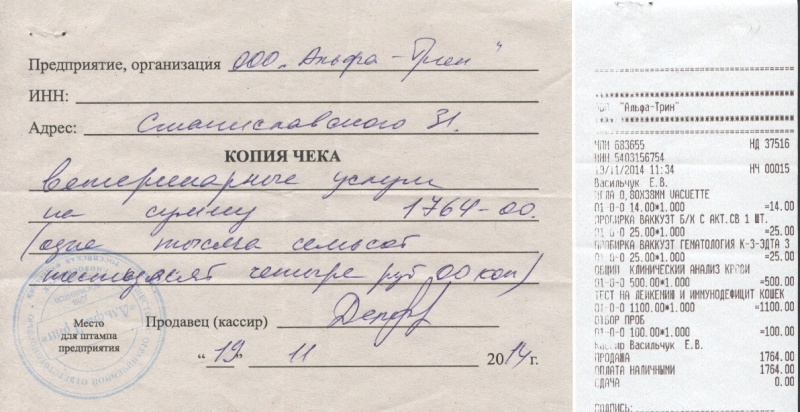 Предприятие, организация ООО „Альфа-Трин"
ИНН:
Адрес: Станиславского 31.
КОПИЯ ЧЕКА
ветеринарные услуги
на сумму 1764-00.
(одна тысяча семьсот
шестьдесят четыре руб 00 коп)
Место
для штампа
предприятия
Продавец (кассир)
"19" 11 2014 г.
"Альфа-Трин"
ЧПН 683655 НД 37516
ИНН 5403156754
13/11/2014 11:34 НЧ 00015
Васильчук Е.В.
ИГЛА 0,80X38MM VACUETTE
01-0-0 14.00*1.000 =14.00
ПРОБИРКА ВАККУЭТ Б/Х С АКТ.СВ 1 ШТ.
01-0-0 25.00*1.000 =25.00
ПРОБИРКА ВАККУЭТ ГЕМАТОЛОГИЯ К-3-ЭДТА 3
01-0-0 25.00*1.000 =25.00
ОБЩИЙ КЛИНИЧЕСКИЙ АНАЛИЗ КРОВИ
01-0-0 500.00*1.000 =500.00
ТЕСТ НА ЛЕЙКЕМИЮ И ИММУНОДЕФИЦИТ КОШЕК
01-0-0 1100.00*1.000 =1100.00
ОТБОР ПРОБ
01-0-0 100.00*1.000 =100.00
Кассир Васильчук Е.В.
ПРОДАЖА 1764.00
ОПЛАТА НАЛИЧНЫМИ 1764.00
СДАЧА 0.00
ПОДПИСЬ: